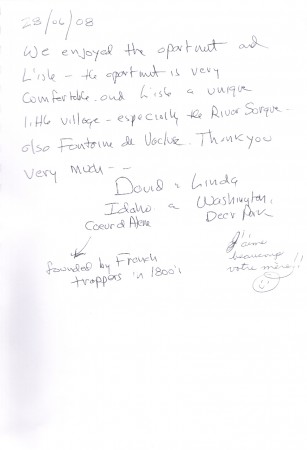 28/06/08
We enjoyed the apartment and
L'isle - the apartment is very
Comfortable. and L'isle a unique
little village - especially the River Sorgue -
also Fontaine de Vacluse. Thank you
very much - -
David & Linda
Idaho & Washington,
Coeur d'Alene Deer Park
founded by French
trappers in 1800's
J'aime
beaucoup
votre mère!!